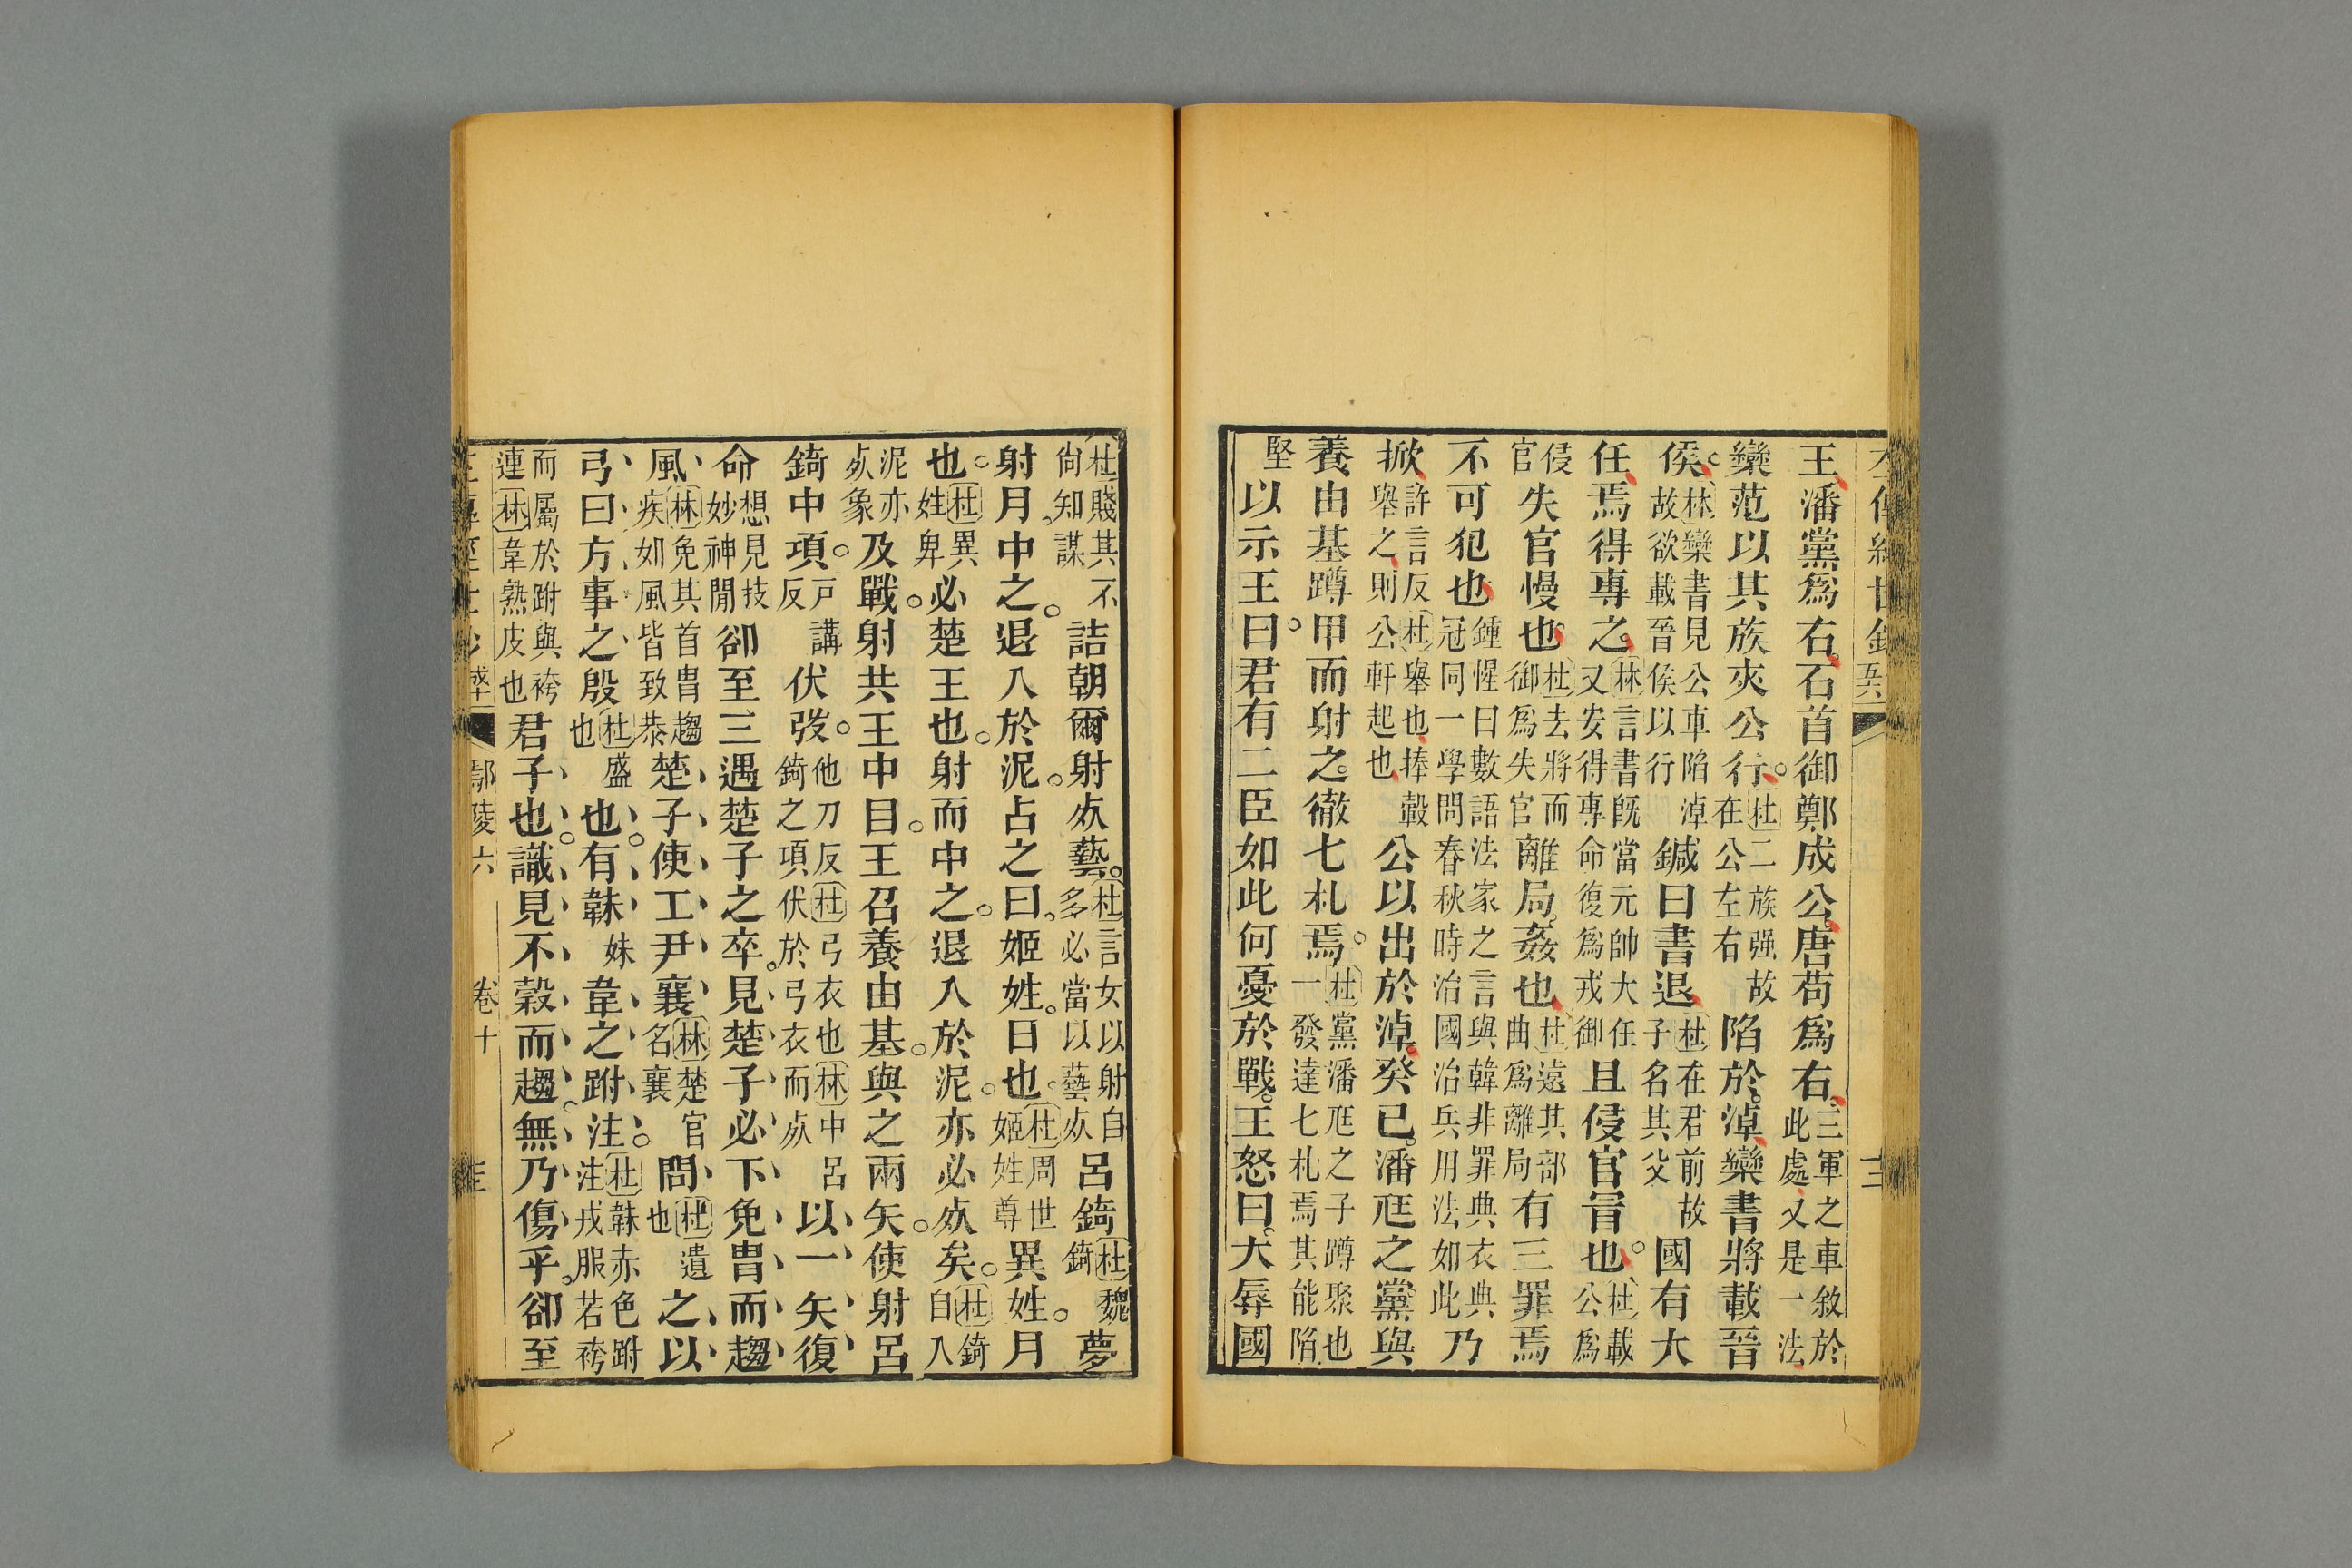 王潘黨爲右石首御鄭成公唐苟爲右三軍之車敘於此處又是一法
欒范以其族夾公行杜二族强故在公左右陷於淖欒書將載晉
侯林欒書見公車陷淖故欲載晉侯以行鍼曰書退杜在君前故子名其父國有大
任焉得專之林言書既當元帥大任又安得專命復爲戎御且侵官冒也杜載公爲
侵官失官慢也杜去將而御爲失官離局姦也杜遠其部曲爲離局有三罪焉
不可犯也鍾惺曰數語法家之言與韓非罪典衣典冠同一學問春秋時治國治兵用法如此乃
掀許言反杜舉也捧轂舉之則公軒起也公以出於淖癸巳潘尫之黨與
養由基蹲甲而射之徹七札焉杜黨潘尫之子蹲聚也一發達七札焉其能陷
堅以示王曰君有二臣如此何憂於戰王怒曰大辱國
杜賤其不尚知謀詰朝爾射㱙藝杜言女以射自多必當以藝㱙呂錡杜魏錡夢
射月中之退入於泥占之曰姬姓日也杜周世姬姓尊異姓月
也杜異姓卑必楚王也射而中之退入於泥亦必㱙矣杜錡自入
泥亦㱙象及戰射共王中目王召養由基與之兩矢使射呂
錡中項戸講反伏弢他刀反杜弓衣也林中呂錡之項伏於弓衣而㱙以一矢復
命想見技妙神閒郤至三遇楚子之卒見楚子必下免冑而趨
風林免其首冑趨疾如風皆致恭楚子使工尹襄林楚官名襄問杜遺也之以
弓曰方事之殷杜盛也也有韎妹韋之跗注杜韎赤色跗注戎服若袴
而屬於跗與袴連林韋熟皮也君子也識見不穀而趨無乃傷乎郤至
鄢陵六 卷十